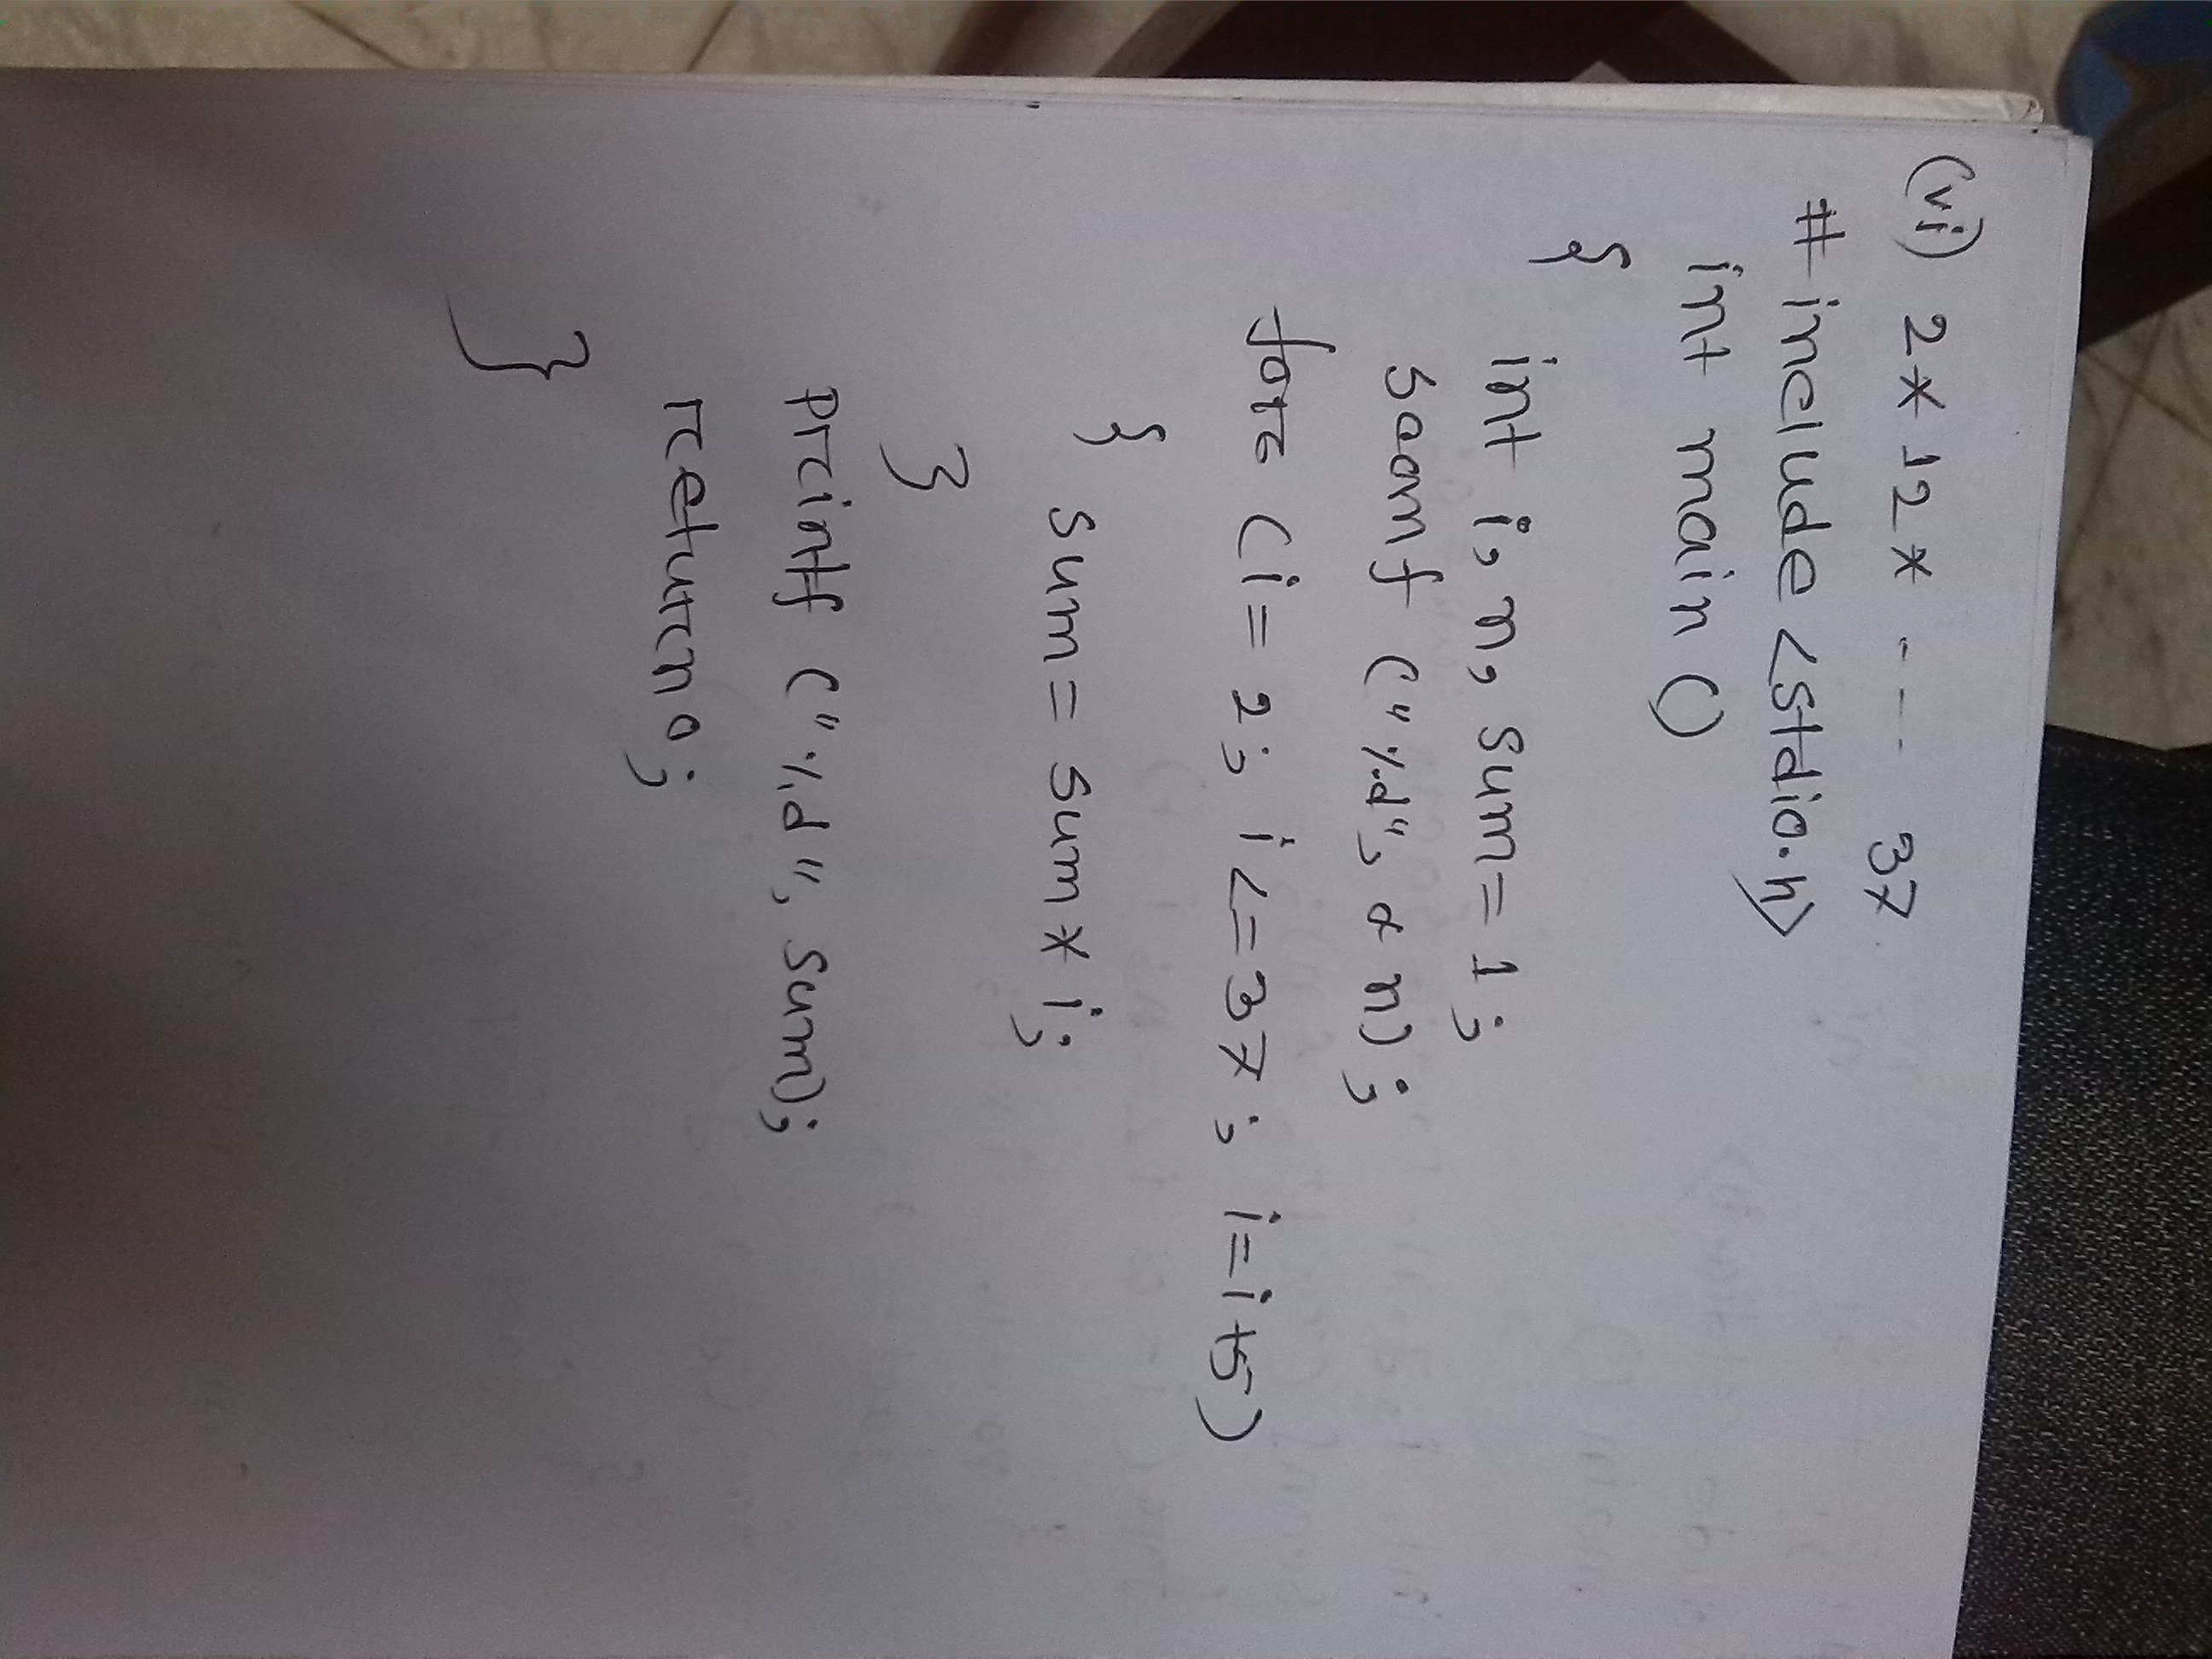 (vi) 2 * 12 * ---- 37
# include <stdio.h>
int main ()
{
int i, n, sum = 1 ;
scanf ("%d", & n) ;
for (i = 2; i <= 37 ; i = i +5)
{ sum = sum * i ;
}
printf ("%d", sum);
return 0 ;
}